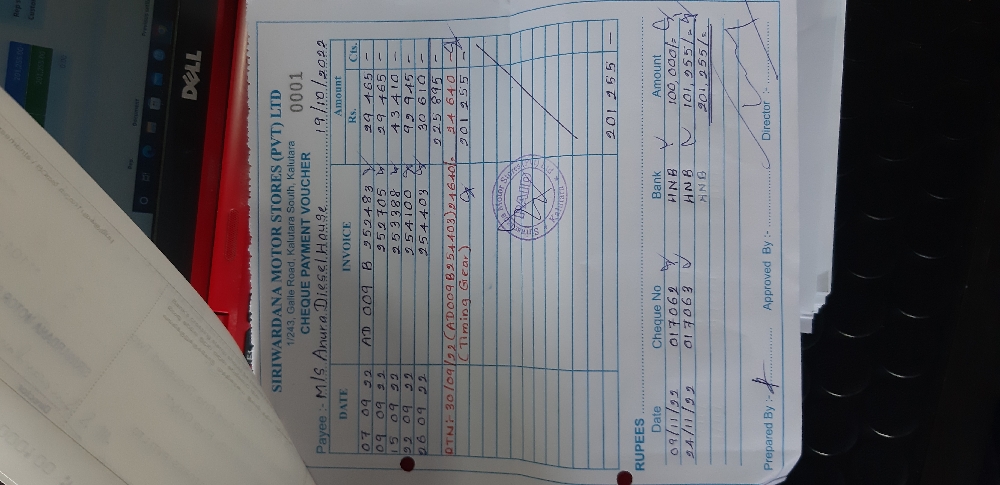 SIRIWARDANA MOTOR STORES (PVT) LTD
1/243, Galle Road, Kalutara South, Kalutara
CHEQUE PAYMENT VOUCHER 0001
Payee :- M/S Anura Diesel House 19/10/2022
DATE INVOICE Amount
Rs. Cts.
07 09 22 AD 009 B 252483 29 465 -
09 09 22 252705 29 465 -
15 09 22 253388 43 410 -
22 09 22 254100 92 945 -
26 09 22 254403 30 610 -
225 895 -
DTN:- 30/09/22 (AD009B254403) 24640/= 24 640 -
(Timing Gear) 201 255 -
201 255 -
RUPEES
Date Cheque No Bank Amount
09/11/22 017062 HNB 100,000/=
24/11/22 017063 HNB 101,255/=
HNB 201,255/=
Prepared By :- Approved By :- Director :-
DELL